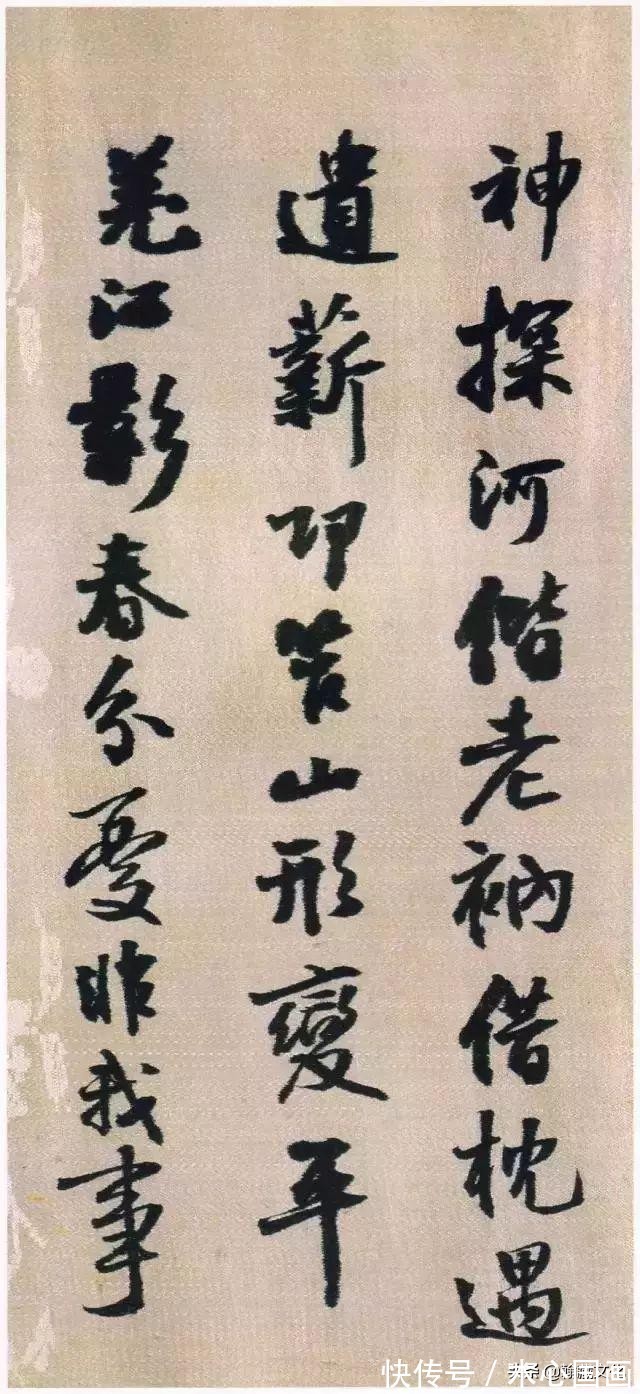 神探河偕老衲借枕遇
遺薪邛笮山形變平
羌江影春分憂非我事
快传号 /